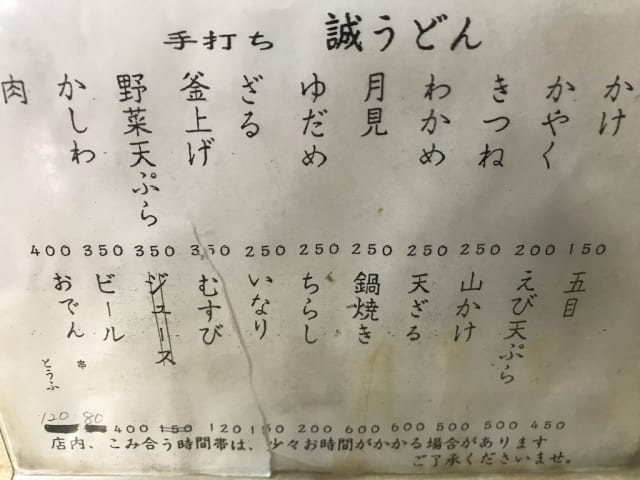 手打ち 誠うどん
かけ
かやく
きつね
わかめ
月見
ゆだめ
ざる
釜上げ
野菜天ぷら
かしわ
肉
400 350 350 350 250 250 250 250 250 200 150
五目
えび天ぷら
山かけ
天ざる
鍋焼き
ちらし
いなり
むすび
ジュース
ビール
おでん
串
とうふ
120 80 400 150 120 150 200 600 600 500 500 450
店内、こみ合う時間帯は、少々お時間がかかる場合があります
ご了承くださいませ。